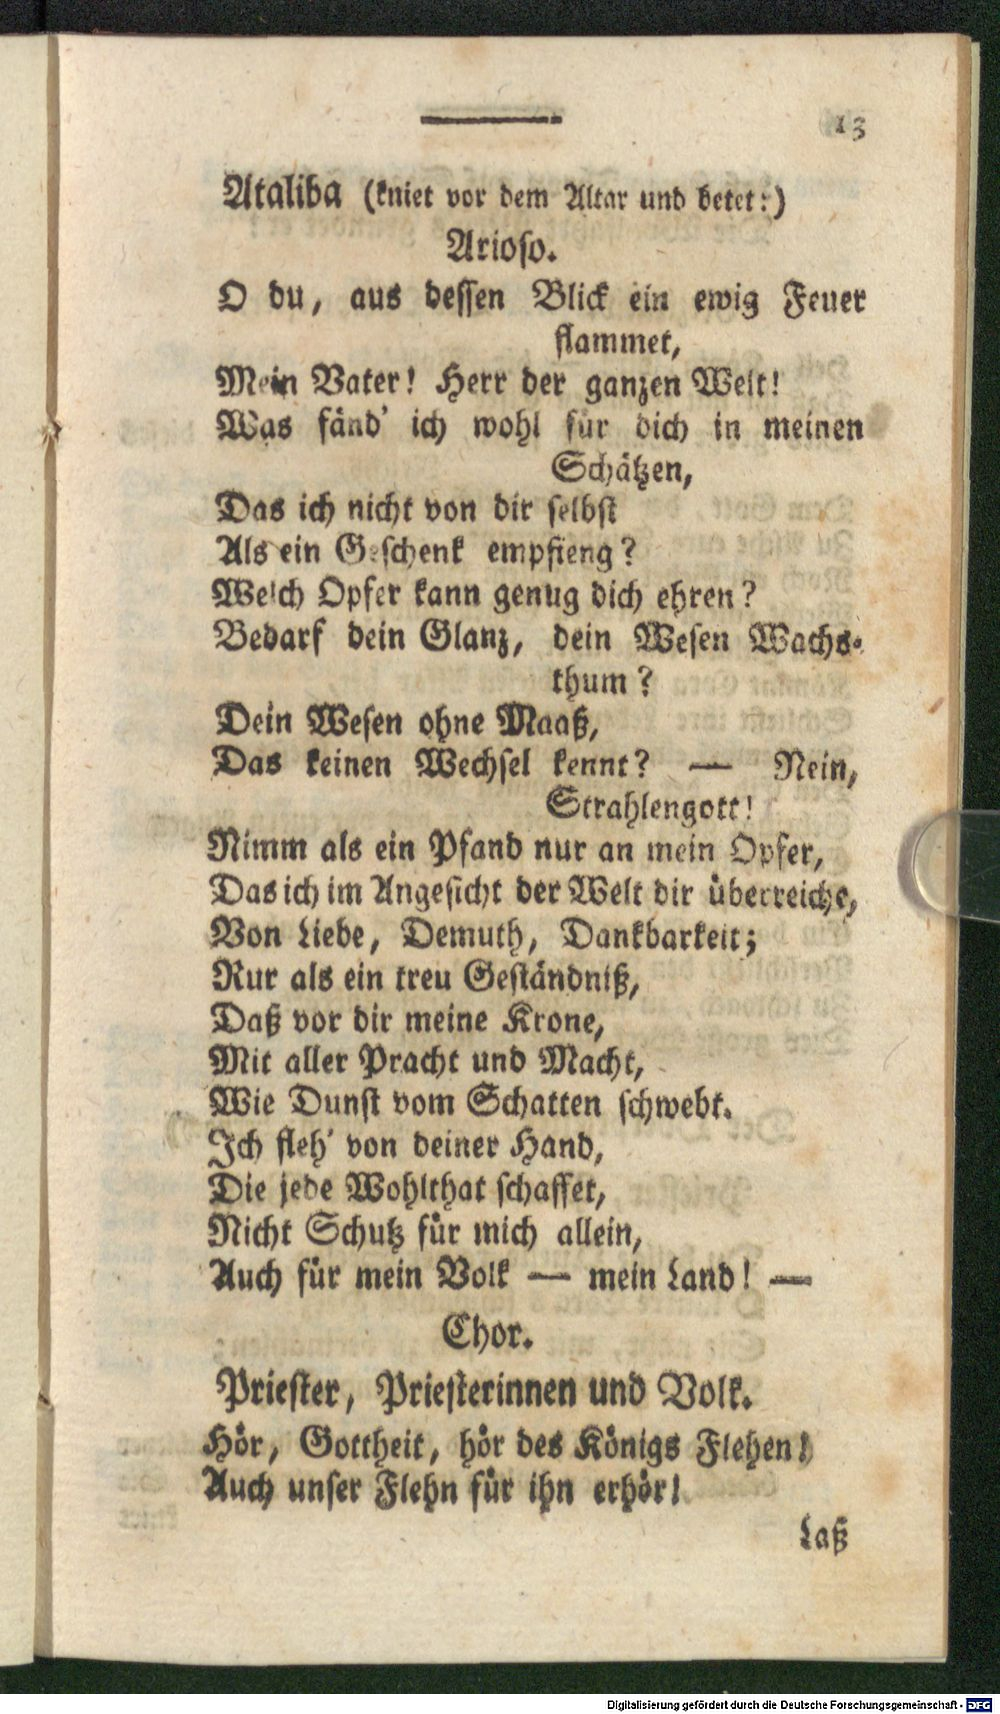 13
Ataliba (kniet vor dem Altar und betet:)
Arioso.
O du, aus dessen Blick ein ewig Feuer
flammet,
Mein Vater! Herr der ganzen Welt!
Was fänd' ich wohl für dich in meinen
Schätzen,
Das ich nicht von dir selbst
Als ein Geschenk empfieng?
Welch Opfer kann genug dich ehren?
Bedarf dein Glanz, dein Wesen Wachs-
thum?
Dein Wesen ohne Maaß,
Das keinen Wechsel kennt? — Nein,
Strahlengott!
Nimm als ein Pfand nur an mein Opfer,
Das ich im Angesicht der Welt dir überreiche,
Von Liebe, Demuth, Dankbarkeit;
Nur als ein treu Geständniß,
Daß vor dir meine Krone,
Mit aller Pracht und Macht,
Wie Dunst vom Schatten schwebt.
Ich fleh' von deiner Hand,
Die jede Wohlthat schaffet,
Nicht Schutz für mich allein,
Auch für mein Volk — mein Land! —
Chor.
Priester, Priesterinnen und Volk.
Hör, Gottheit, hör des Königs Flehen!
Auch unser Flehn für ihn erhör!
Laß
Digitalisierung gefördert durch die Deutsche Forschungsgemeinschaft - DFG